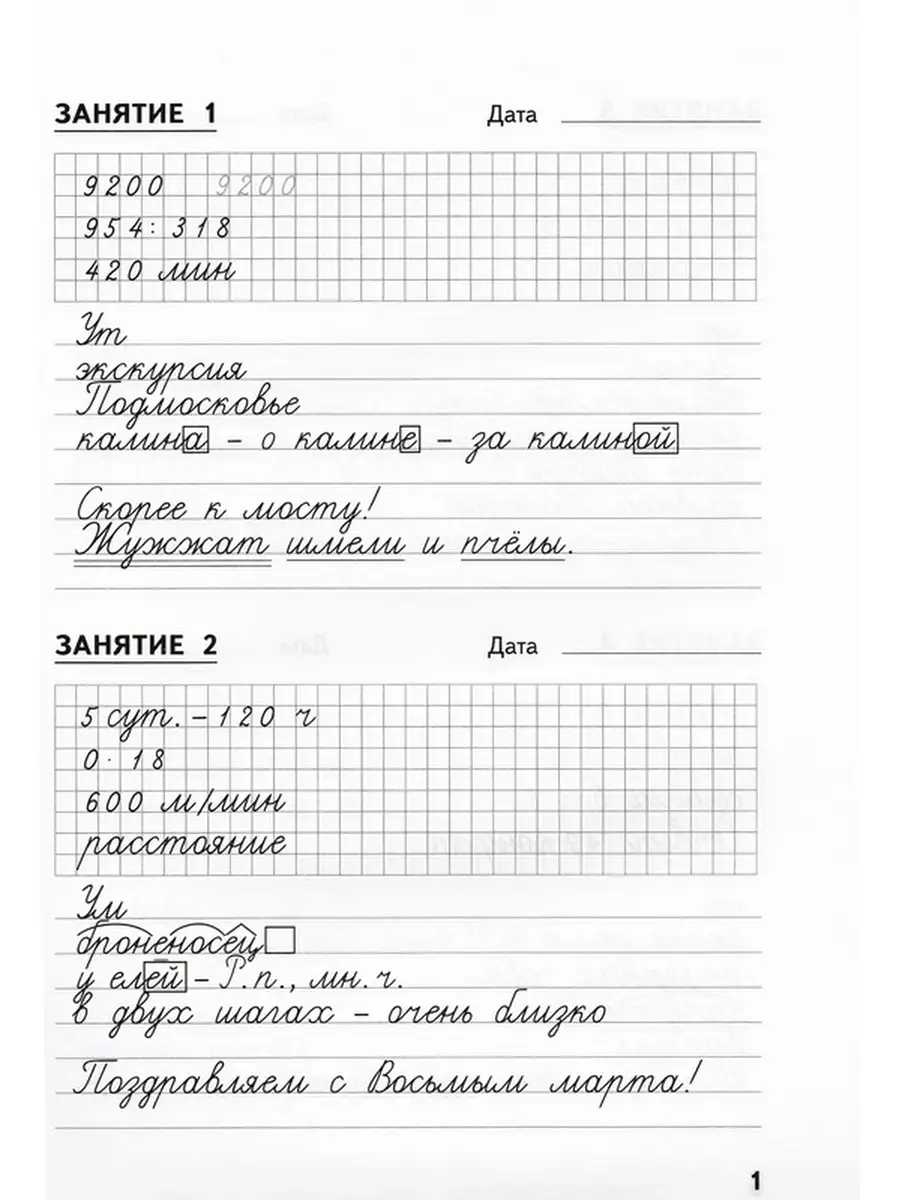 ЗАНЯТИЕ 1 Дата
9200 9200
954 : 318
420 мин
Ут
экскурсия
Подмосковье
калина – о калине – за калиной
Скорее к мосту!
Жужжат шмели и пчёлы.
ЗАНЯТИЕ 2 Дата
5 сут. – 120 ч
0 · 18
600 м/мин
расстояние
Ум
броненосец
у елей – Р.п., мн.ч.
в двух шагах – очень близко
Поздравляем с Восьмым марта!
1